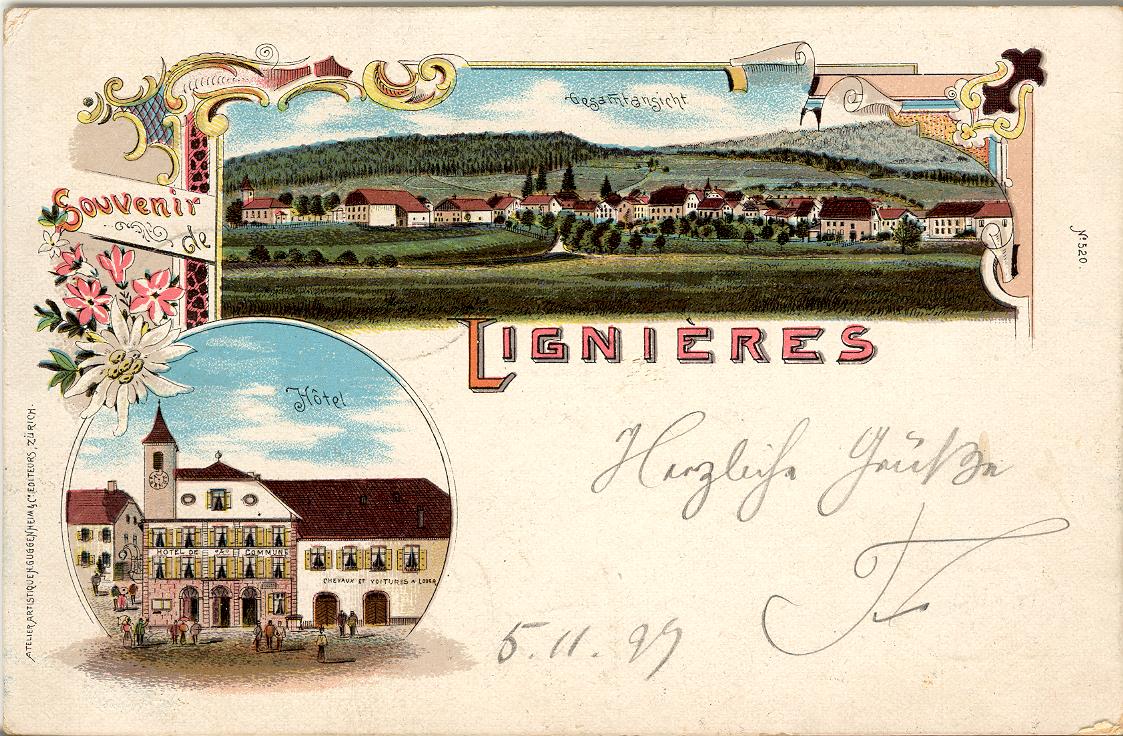 Gesamtansicht
Souvenir
de
N° 520.
LIGNIÈRES
Hôtel
HOTEL DE COMMUNE
CHEVAUX ET VOITURES A LOUER
ATELIER ARTISTIQUE H. GUGGENHEIM & Cie EDITEURS, ZÜRICH.
Herzliche Grüße
5.11.99